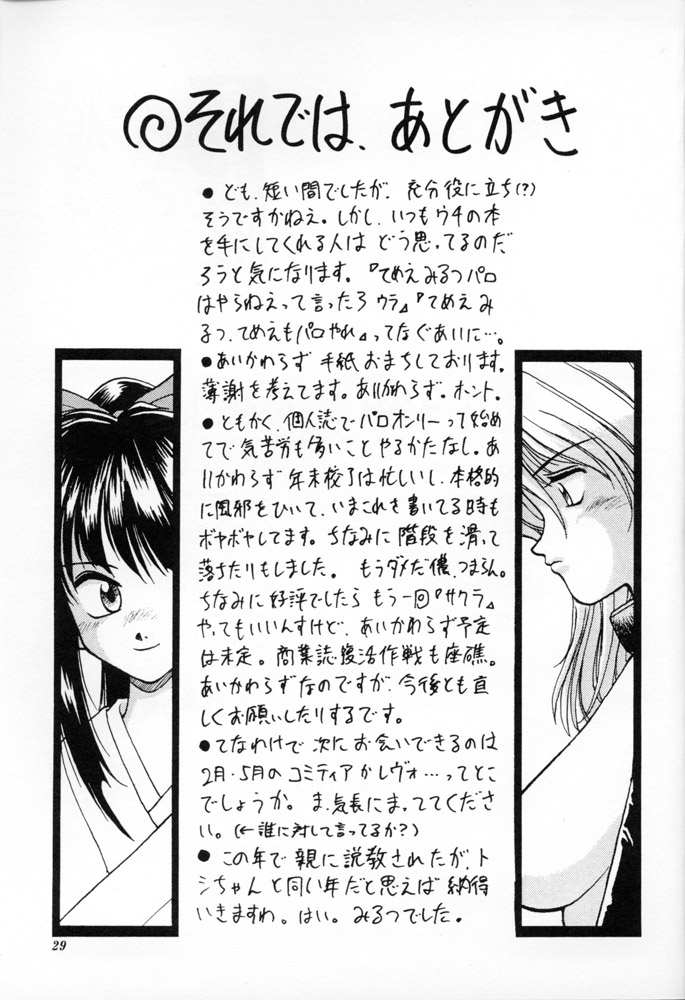 それでは、あとがき
●ども、短い間でしたが、充分役に立ち(?)
そうですかねえ。しかし、いつもウチの本
を手にしてくれる人は どう思ってるのだ
ろうと気になります。『てめえみるつパロ
はやらねえって言ったろ ウラ』『てめえ み
るつ、てめえもパロやれ』ってなぐあいに…。
●あいかわらず 手紙 おまちしております。
薄謝を考えてます。あいかわらず。ホント。
●ともかく、個人誌でパロオンリーって始め
てで気苦労も多いことやるかたなし。あ
いかわらず 年末校了は忙しいし、本格的
に風邪をひいて、いまこれを書いてる時も
ボヤボヤしてます。ちなみに 階段を滑って
落ちたりもしました。 もうダメだ儂、つまらん。
ちなみに好評でしたら もう一回『サクラ』
やってもいいんすけど、あいかわらず予定
は未定。商業誌復活作戦も座礁。
あいかわらずなのですが、今後とも宜
しくお願いしたりするです。
●てなわけで 次に お会いできるのは
2月・5月の コミティア か レヴォ…ってとこ
でしょうか。ま、気長にまっててくださ
い。(←誰に対して言ってるか?)
● この年で 親に説教されたが、ト
シちゃんと同い年だと思えば 納得
いきますわ。はい。みるつでした。
29